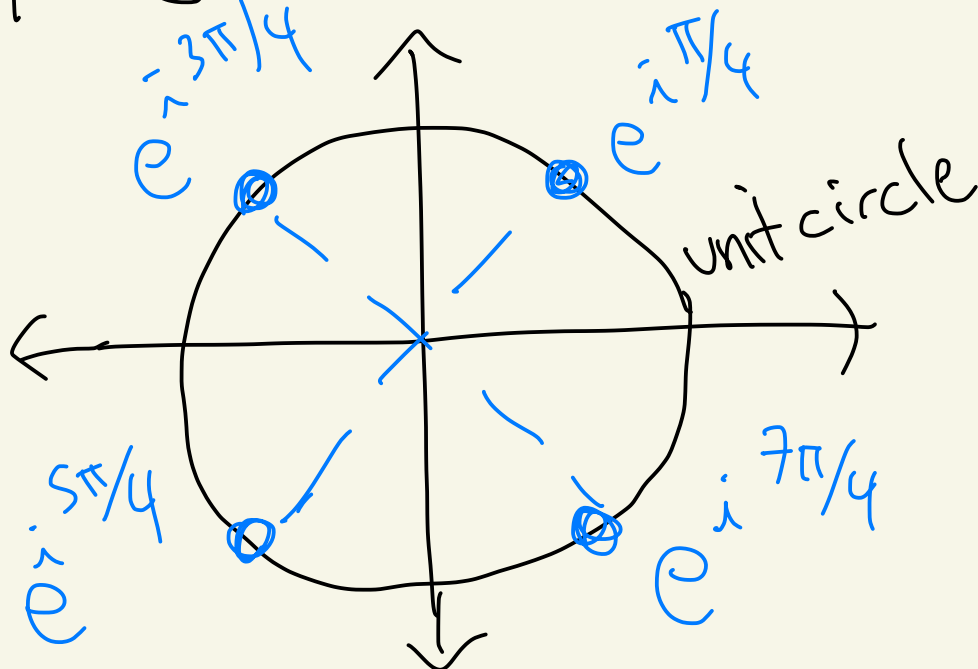 e^{i3π/4}
e^{iπ/4}
unit circle
e^{i5π/4}
e^{i7π/4}